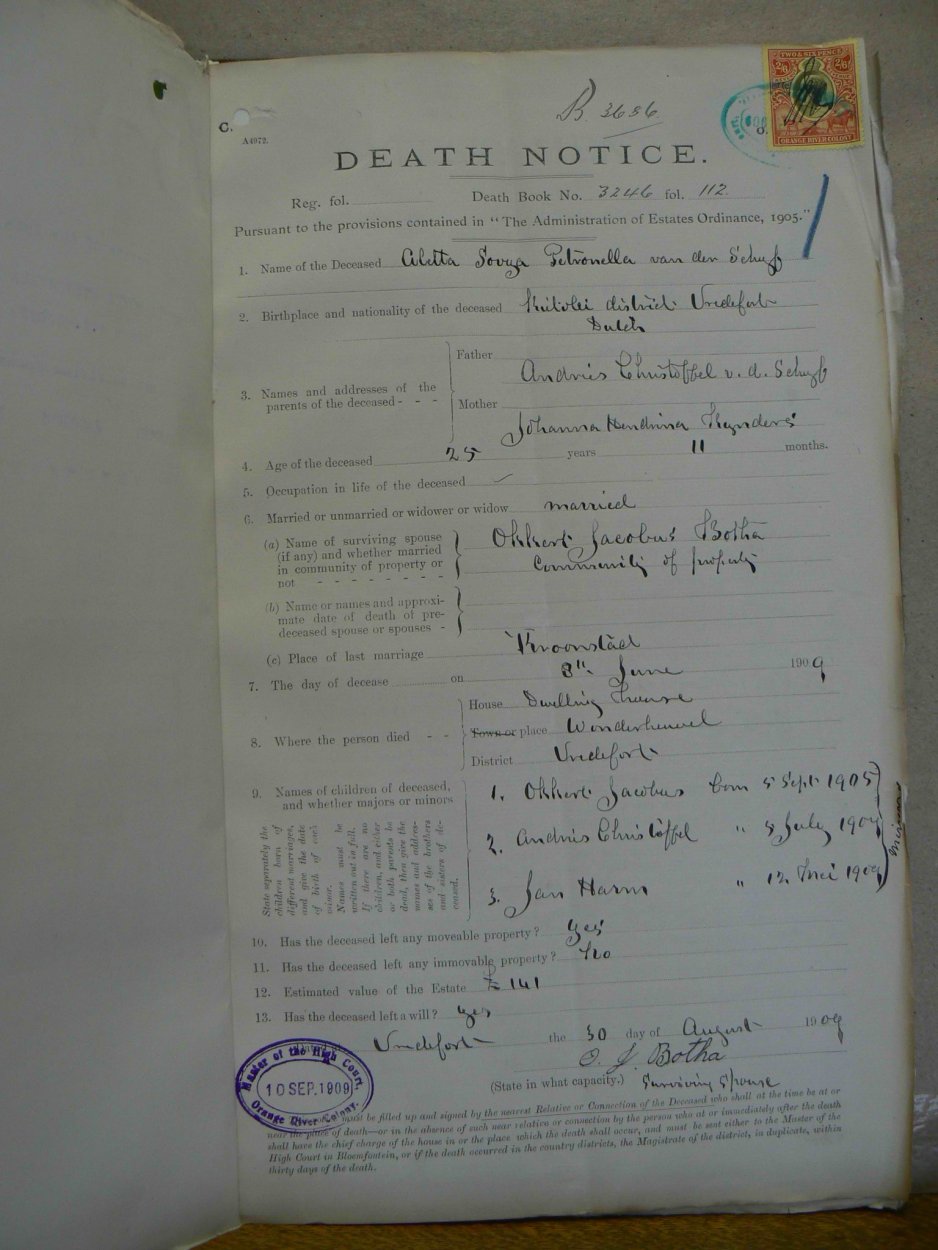 B. 3636
TWO & SIX PENCE
2/6 2/6
ORANGE RIVER COLONY
C.
A4972.
DEATH NOTICE.
Reg. fol. Death Book No. 3246 fol. 112
Pursuant to the provisions contained in "The Administration of Estates Ordinance, 1905."
1. Name of the Deceased Aletta Sovya Petronella van der Schyf
2. Birthplace and nationality of the deceased district Vredefort
Dutch
Father
Andries Christoffel v. d. Schyf
3. Names and addresses of the
parents of the deceased - - -
Mother
Johanna Hendrina
4. Age of the deceased 25 years 11 months.
5. Occupation in life of the deceased
6. Married or unmarried or widower or widow married
(a) Name of surviving spouse
(if any) and whether married
in community of property or
not - - - - - - -
Okkert Jacobus Botha
Community of property
(b) Name or names and approxi-
mate date of death of pre-
deceased spouse or spouses -
(c) Place of last marriage Kroonstad
7. The day of decease on 8th June 1909
8. Where the person died - -
House Dwelling House
Town or place Wonderheuvel
District Vredefort
9. Names of children of deceased,
and whether majors or minors
State separately the
children born of
different marriages,
and give the date
of birth of each
minor.
Names must be
written out in full.
If there are no
children, and either
or both parents be
dead, then give the
names and address-
es of the brothers
and sisters of de-
ceased.
1. Okkert Jacobus born 5 Sept 1905
2. Andries Christoffel " 5 July 1907
3. Jan Harm " 12 Mei 1909
minors
10. Has the deceased left any moveable property? Yes
11. Has the deceased left any immovable property? No
12. Estimated value of the Estate £ 141
13. Has the deceased left a will? Yes
Dated at Vredefort the 30 day of August 1909
O. J. Botha
(State in what capacity.) Surviving Spouse
Master of the High Court,
10 SEP. 1909
Orange River Colony.
must be filled up and signed by the nearest Relative or Connection of the Deceased who shall at the time be at or
near the place of death—or in the absence of such near relative or connection by the person who at or immediately after the death
shall have the chief charge of the house in or the place which the death shall occur, and must be sent either to the Master of the
High Court in Bloemfontein, or if the death occurred in the country districts, the Magistrate of the district, in duplicate, within
thirty days of the death.